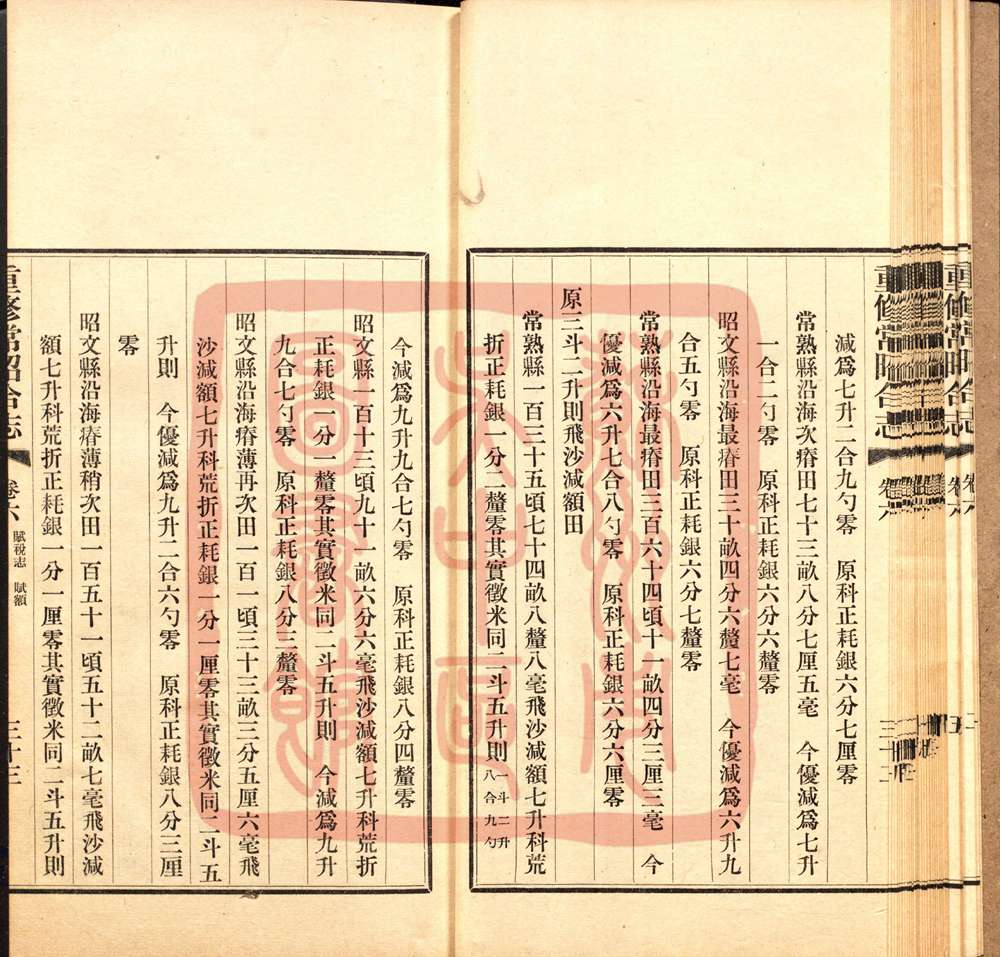 減爲七升二合九勺零　原科正耗銀六分七厘零
常熟縣沿海次瘠田七十三畝八分七厘五毫　今優減爲七升
一合二勺零　原科正耗銀六分六釐零
昭文縣沿海最瘠田三十畝四分六釐七毫　今優減爲六升九
合五勺零　原科正耗銀六分七釐零
常熟縣沿海最瘠田三百六十四頃十一畝四分三厘三毫　今
優減爲六升七合八勺零　原科正耗銀六分六厘零
原三斗二升則飛沙減額田
常熟縣一百三十五頃七十四畝八釐八毫飛沙減額七升科荒
折正耗銀一分二釐零其實徵米同二斗五升則一斗二升八合九勺
今減爲九升九合七勺零　原科正耗銀八分四釐零
昭文縣一百十三頃九十一畝六分六毫飛沙減額七升科荒折
正耗銀一分一釐零其實徵米同二斗五升則　今減爲九升
九合七勺零　原科正耗銀八分三釐零
昭文縣沿海瘠薄再次田一百一頃三十三畝三分五厘六毫飛
沙減額七升科荒折正耗銀一分一厘零其實徵米同二斗五
升則　今優減爲九升二合六勺零　原科正耗銀八分三厘
零
昭文縣沿海瘠薄稍次田一百五十一頃五十二畝七毫飛沙減
額七升科荒折正耗銀一分一厘零其實徵米同二斗五升則
重修常昭合志　卷六　賦稅志　賦額　三十三